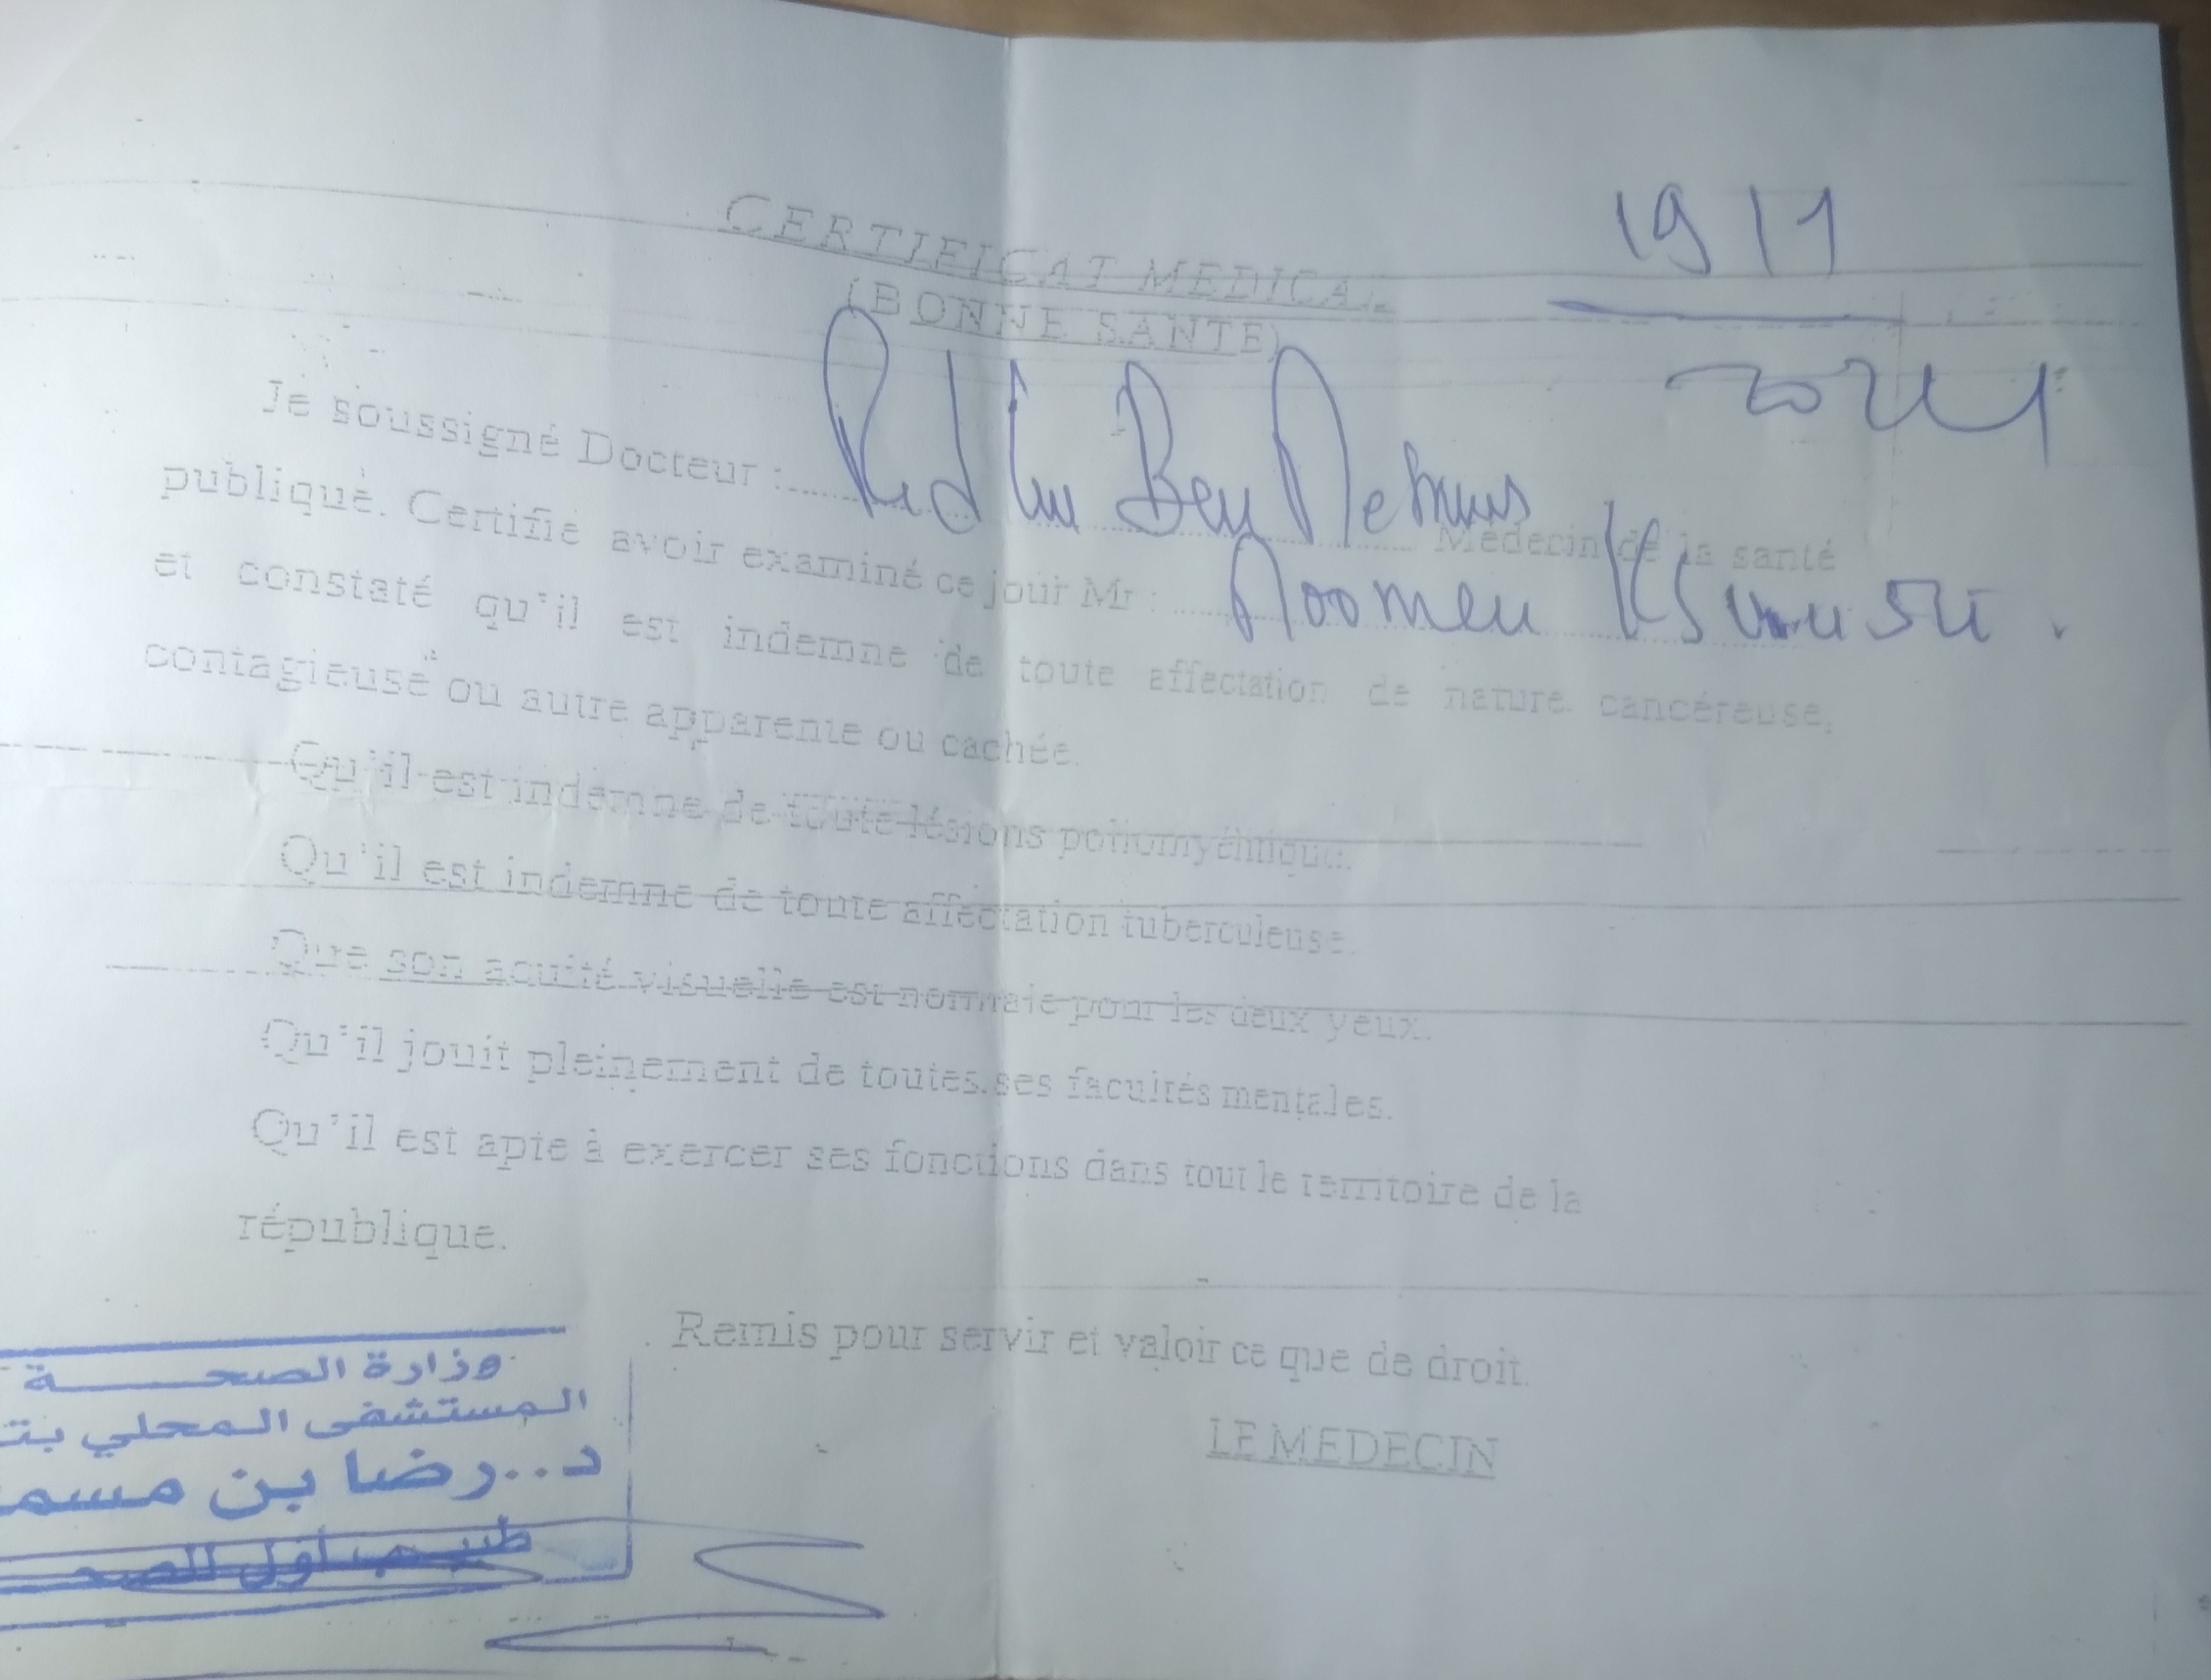 CERTIFICAT MEDICAL
(BONNE SANTE)
19 11
Je soussigné Docteur : Ridha Ben Médecin de la santé
publique. Certifie avoir examiné ce jour Mr : Noomen
et constaté qu'il est indemne de toute affectation de nature cancéreuse,
contagieuse ou autre apparente ou cachée.
Qu'il est indemne de toute lésions poliomyélitique.
Qu'il est indemne de toute affectation tuberculeuse.
Que son acuité visuelle est normale pour les deux yeux.
Qu'il jouit pleinement de toutes ses facultés mentales.
Qu'il est apte à exercer ses fonctions dans tout le territoire de la
république.
Remis pour servir et valoir ce que de droit.
LE MEDECIN
وزارة الصحـــــة
المستشفى المحلي
د..رضا بن
طبيب أول